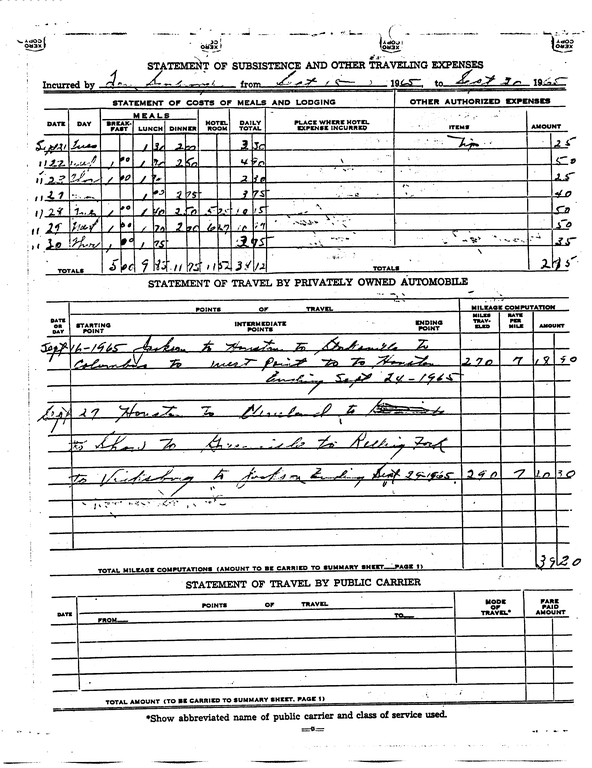 XERO COPY XERO COPY XERO COPY XERO COPY
STATEMENT OF SUBSISTENCE AND OTHER TRAVELING EXPENSES
Incurred by from Sept 1965, to Sept 30 1965
STATEMENT OF COSTS OF MEALS AND LODGING OTHER AUTHORIZED EXPENSES
DATE DAY MEALS BREAK-FAST LUNCH DINNER HOTEL ROOM DAILY TOTAL PLACE WHERE HOTEL EXPENSE INCURRED ITEMS AMOUNT
Sept 21 Tues 1 30 2 00 3 30 Tip 25
" 22 Wed 1 00 1 40 2 50 4 90 50
" 23 Thu 1 00 1 90 2 90 25
" 27 1 00 2 75 3 75 40
" 28 Tues 1 00 1 40 2 50 5 25 10 15 50
" 29 Wed 1 00 1 70 2 00 6 27 10 97 50
" 30 Thur 1 00 1 75 35
TOTALS 5 00 11 75 11 52 34 12 TOTALS 2 75
STATEMENT OF TRAVEL BY PRIVATELY OWNED AUTOMOBILE
DATE OR DAY POINTS OF TRAVEL MILEAGE COMPUTATION
STARTING POINT INTERMEDIATE POINTS ENDING POINT MILES TRAV-ELED RATE PER MILE AMOUNT
Sept 16-1965 Jackson to Houston to Starkville to
Columbus to West Point to to Houston 270 7 18 90
Ending Sept 24-1965
Sept 27 Houston to Cleveland to
to Shaw to Greenville to Rolling Fork
to Vicksburg to Jackson Ending Sept 29-1965. 290 7 20 30
TOTAL MILEAGE COMPUTATIONS (AMOUNT TO BE CARRIED TO SUMMARY SHEET—PAGE 1) 39 20
STATEMENT OF TRAVEL BY PUBLIC CARRIER
DATE POINTS OF TRAVEL MODE OF TRAVEL* FARE PAID AMOUNT
FROM TO
TOTAL AMOUNT (TO BE CARRIED TO SUMMARY SHEET, PAGE 1)
*Show abbreviated name of public carrier and class of service used.